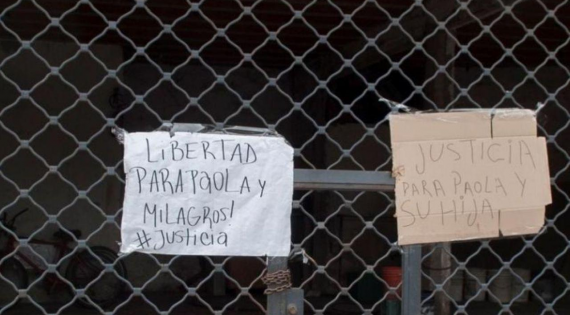 LIBERTAD
PARA PAOLA y
MILAGROS!
#Justicia
JUSTICIA
PARA PAOLA Y
SU HIJA